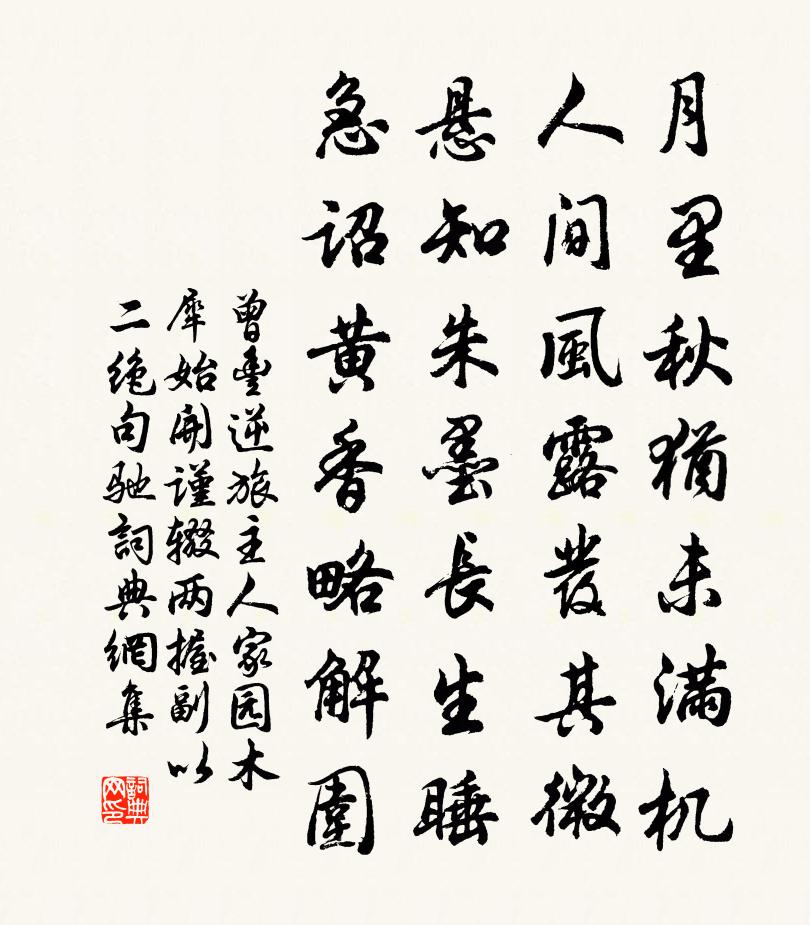 月里秋犹未满机
人间風露發其微
悬知朱墨長生睡
急诏黄香略解圍
曾豊逆旅主人家园木
犀始開谨辍两握副以
二绝句驰詞典網集
詞典
网印